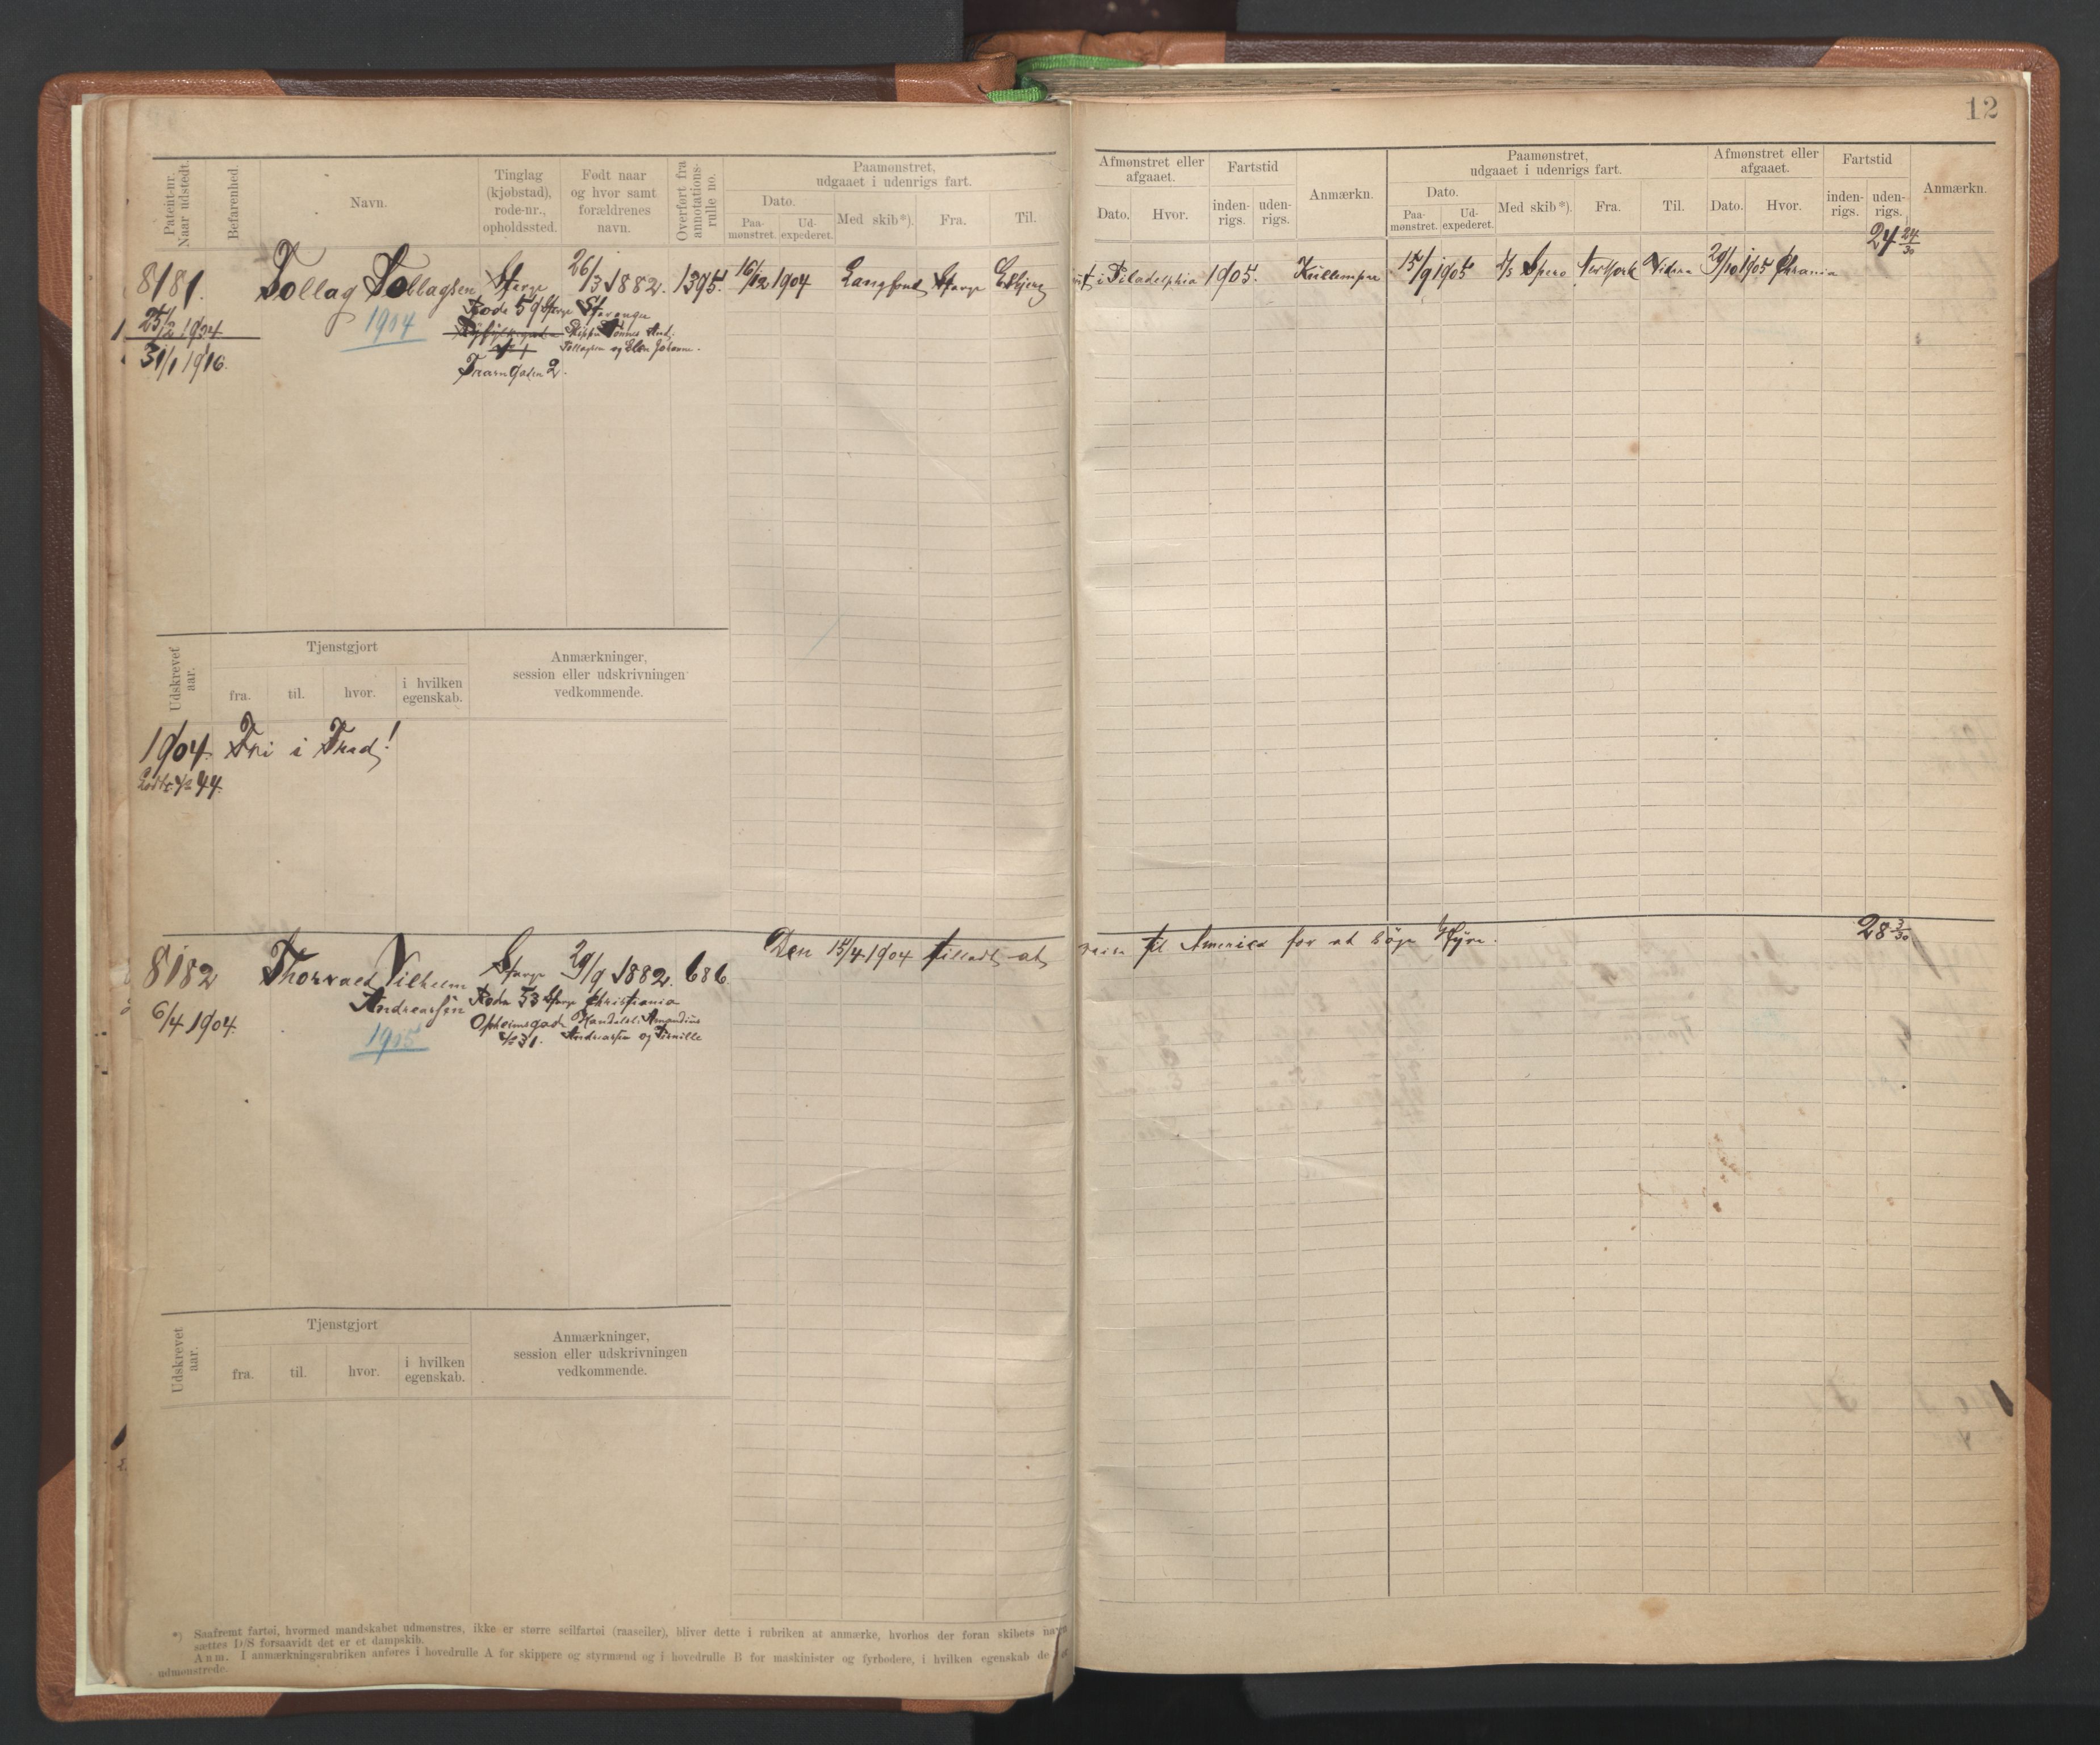 12
Patent-nr. Naar udstedt.
Befarenhed.
Navn.
Tinglag (kjøbstad), rode-nr., opholdssted.
Født naar og hvor samt forældrenes navn.
Overført fra annotations-rulle no.
Paamønstret, udgaaet i udenrigs fart.
Dato.
Paa-mønstret.
Ud-expederet.
Med skib*).
Fra.
Til.
Afmønstret eller afgaaet.
Dato.
Hvor.
Fartstid
inden-rigs.
uden-rigs.
Anmærkn.
Paamønstret, udgaaet i udenrigs fart.
Dato.
Paa-mønstret.
Ud-expederet.
Med skib*).
Fra.
Til.
Afmønstret eller afgaaet.
Dato.
Hvor.
Fartstid
inden-rigs.
uden-rigs.
Anmærkn.
24 24/30
8181. Tollag Tollagsen Stavgr 26/3 1882. 1395. 16/12 1904 Langfond Stavgr Esbjerg
i Filadelphia 1905. 15/9 1905 D/S Spero New York 29/10 1905 Chrania
25/2 1904
31/1 1916.
1904
Rode 59 Stavgr Stavanger
Skipper Tønnes And.
Tollagsen og Elen Johanne.
Gaden 2.
Udskrevet aar.
Tjenstgjort
fra.
til.
hvor.
i hvilken egenskab.
Anmærkninger, session eller udskrivningen vedkommende.
1904. Fri i Fred!
Lodtr. No 44.
8182 Thorvald Vilhelm Stavgr 29/9 1882. 686.
Andreassen Rode 53 Stavgr Christiania
6/4 1904.
1905
Opheimsgade Handelsb. Amandius
No 31. Andreassen og Pernille
Den 15/4 1904 tilladt at reise til America for at søge Hyre.
28 3/30
Udskrevet aar.
Tjenstgjort
fra.
til.
hvor.
i hvilken egenskab.
Anmærkninger, session eller udskrivningen vedkommende.
*) Saafremt fartøi, hvormed mandskabet udmønstres, ikke er større seilfartøi (raaseiler), bliver dette i rubriken at anmærke, hvorhos der foran skibets navn
sættes D/S forsaavidt det er et dampskib.
Anm. I anmærkningsrubriken anføres i hovedrulle A for skippere og styrmænd og i hovedrulle B for maskinister og fyrbødere, i hvilken egenskab de
udmønstrede.